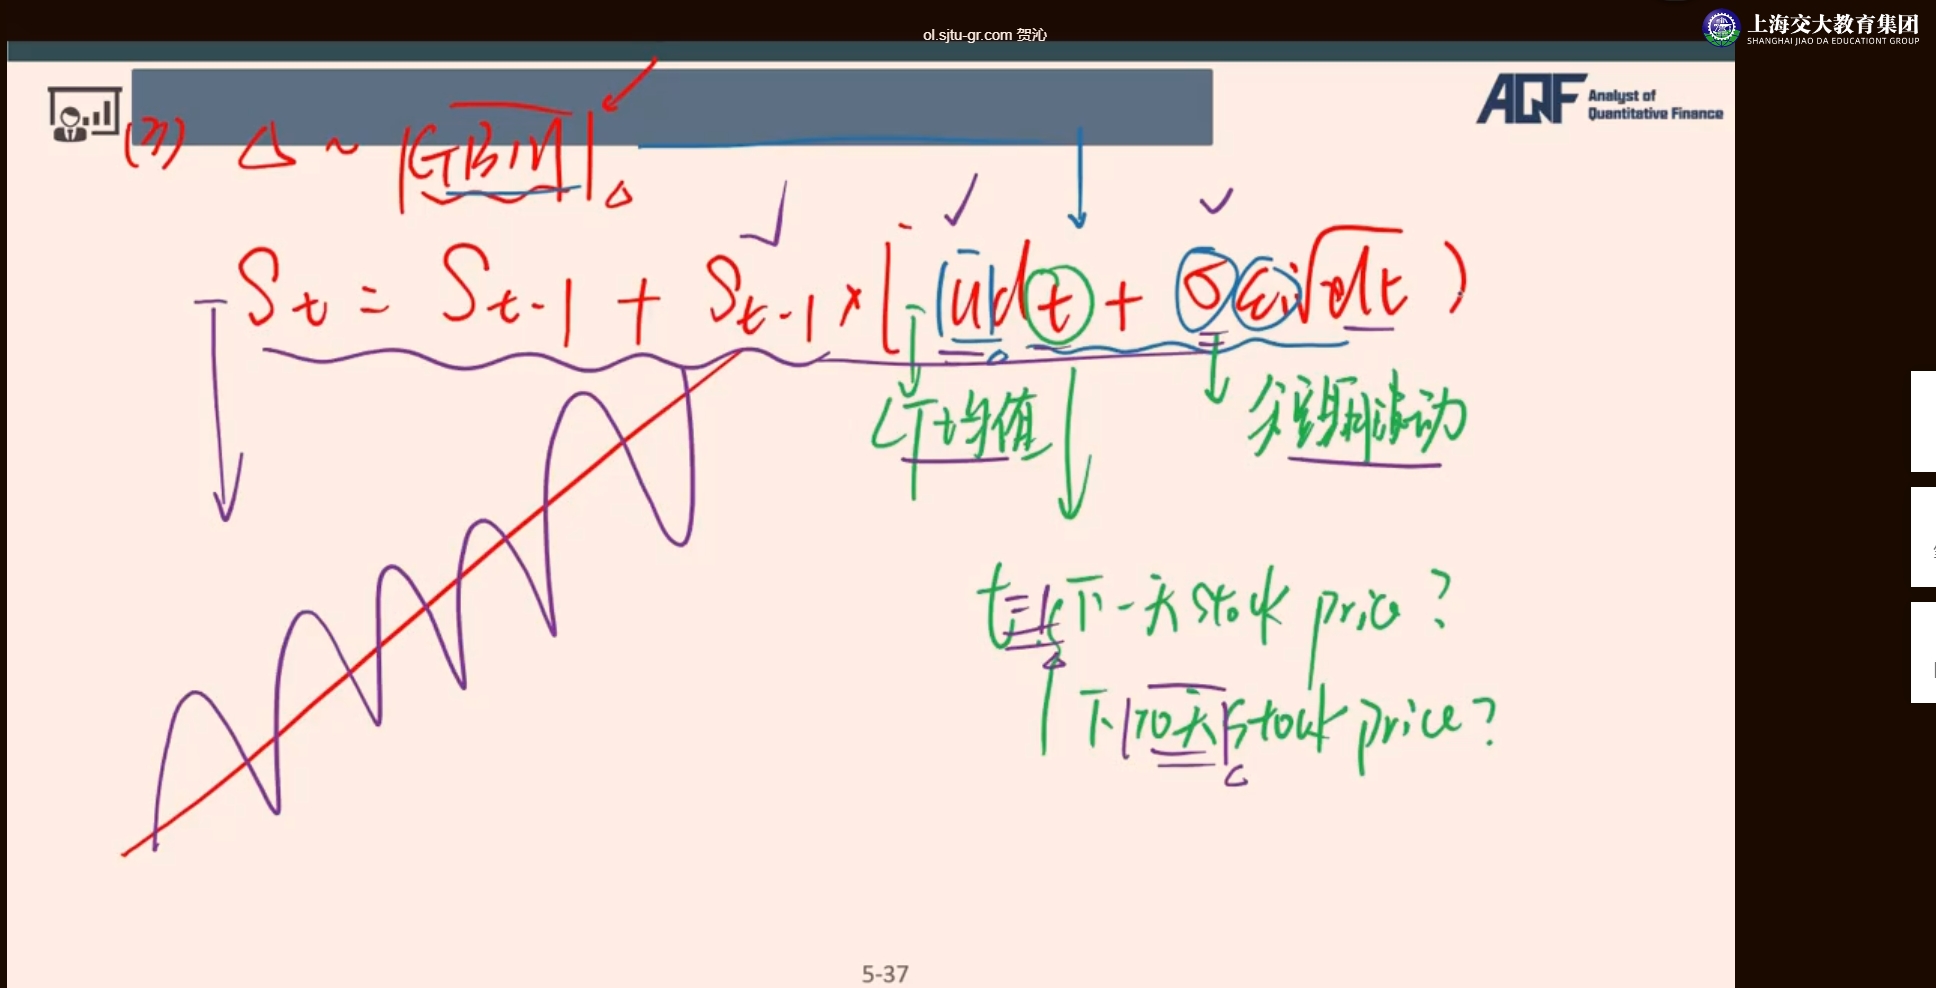 ol.sjtu-gr.com 贺沁
上海交大教育集团
SHANGHAI JIAO DA EDUCATIONT GROUP
AQF Analyst of
Quantitative Finance
(3) △ ~ GBM
St = St-1 + St-1 × [ udt + σεi√dt )
LT均值
短期波动
t=1 下一天 stock price?
下10天 stock price?
5-37